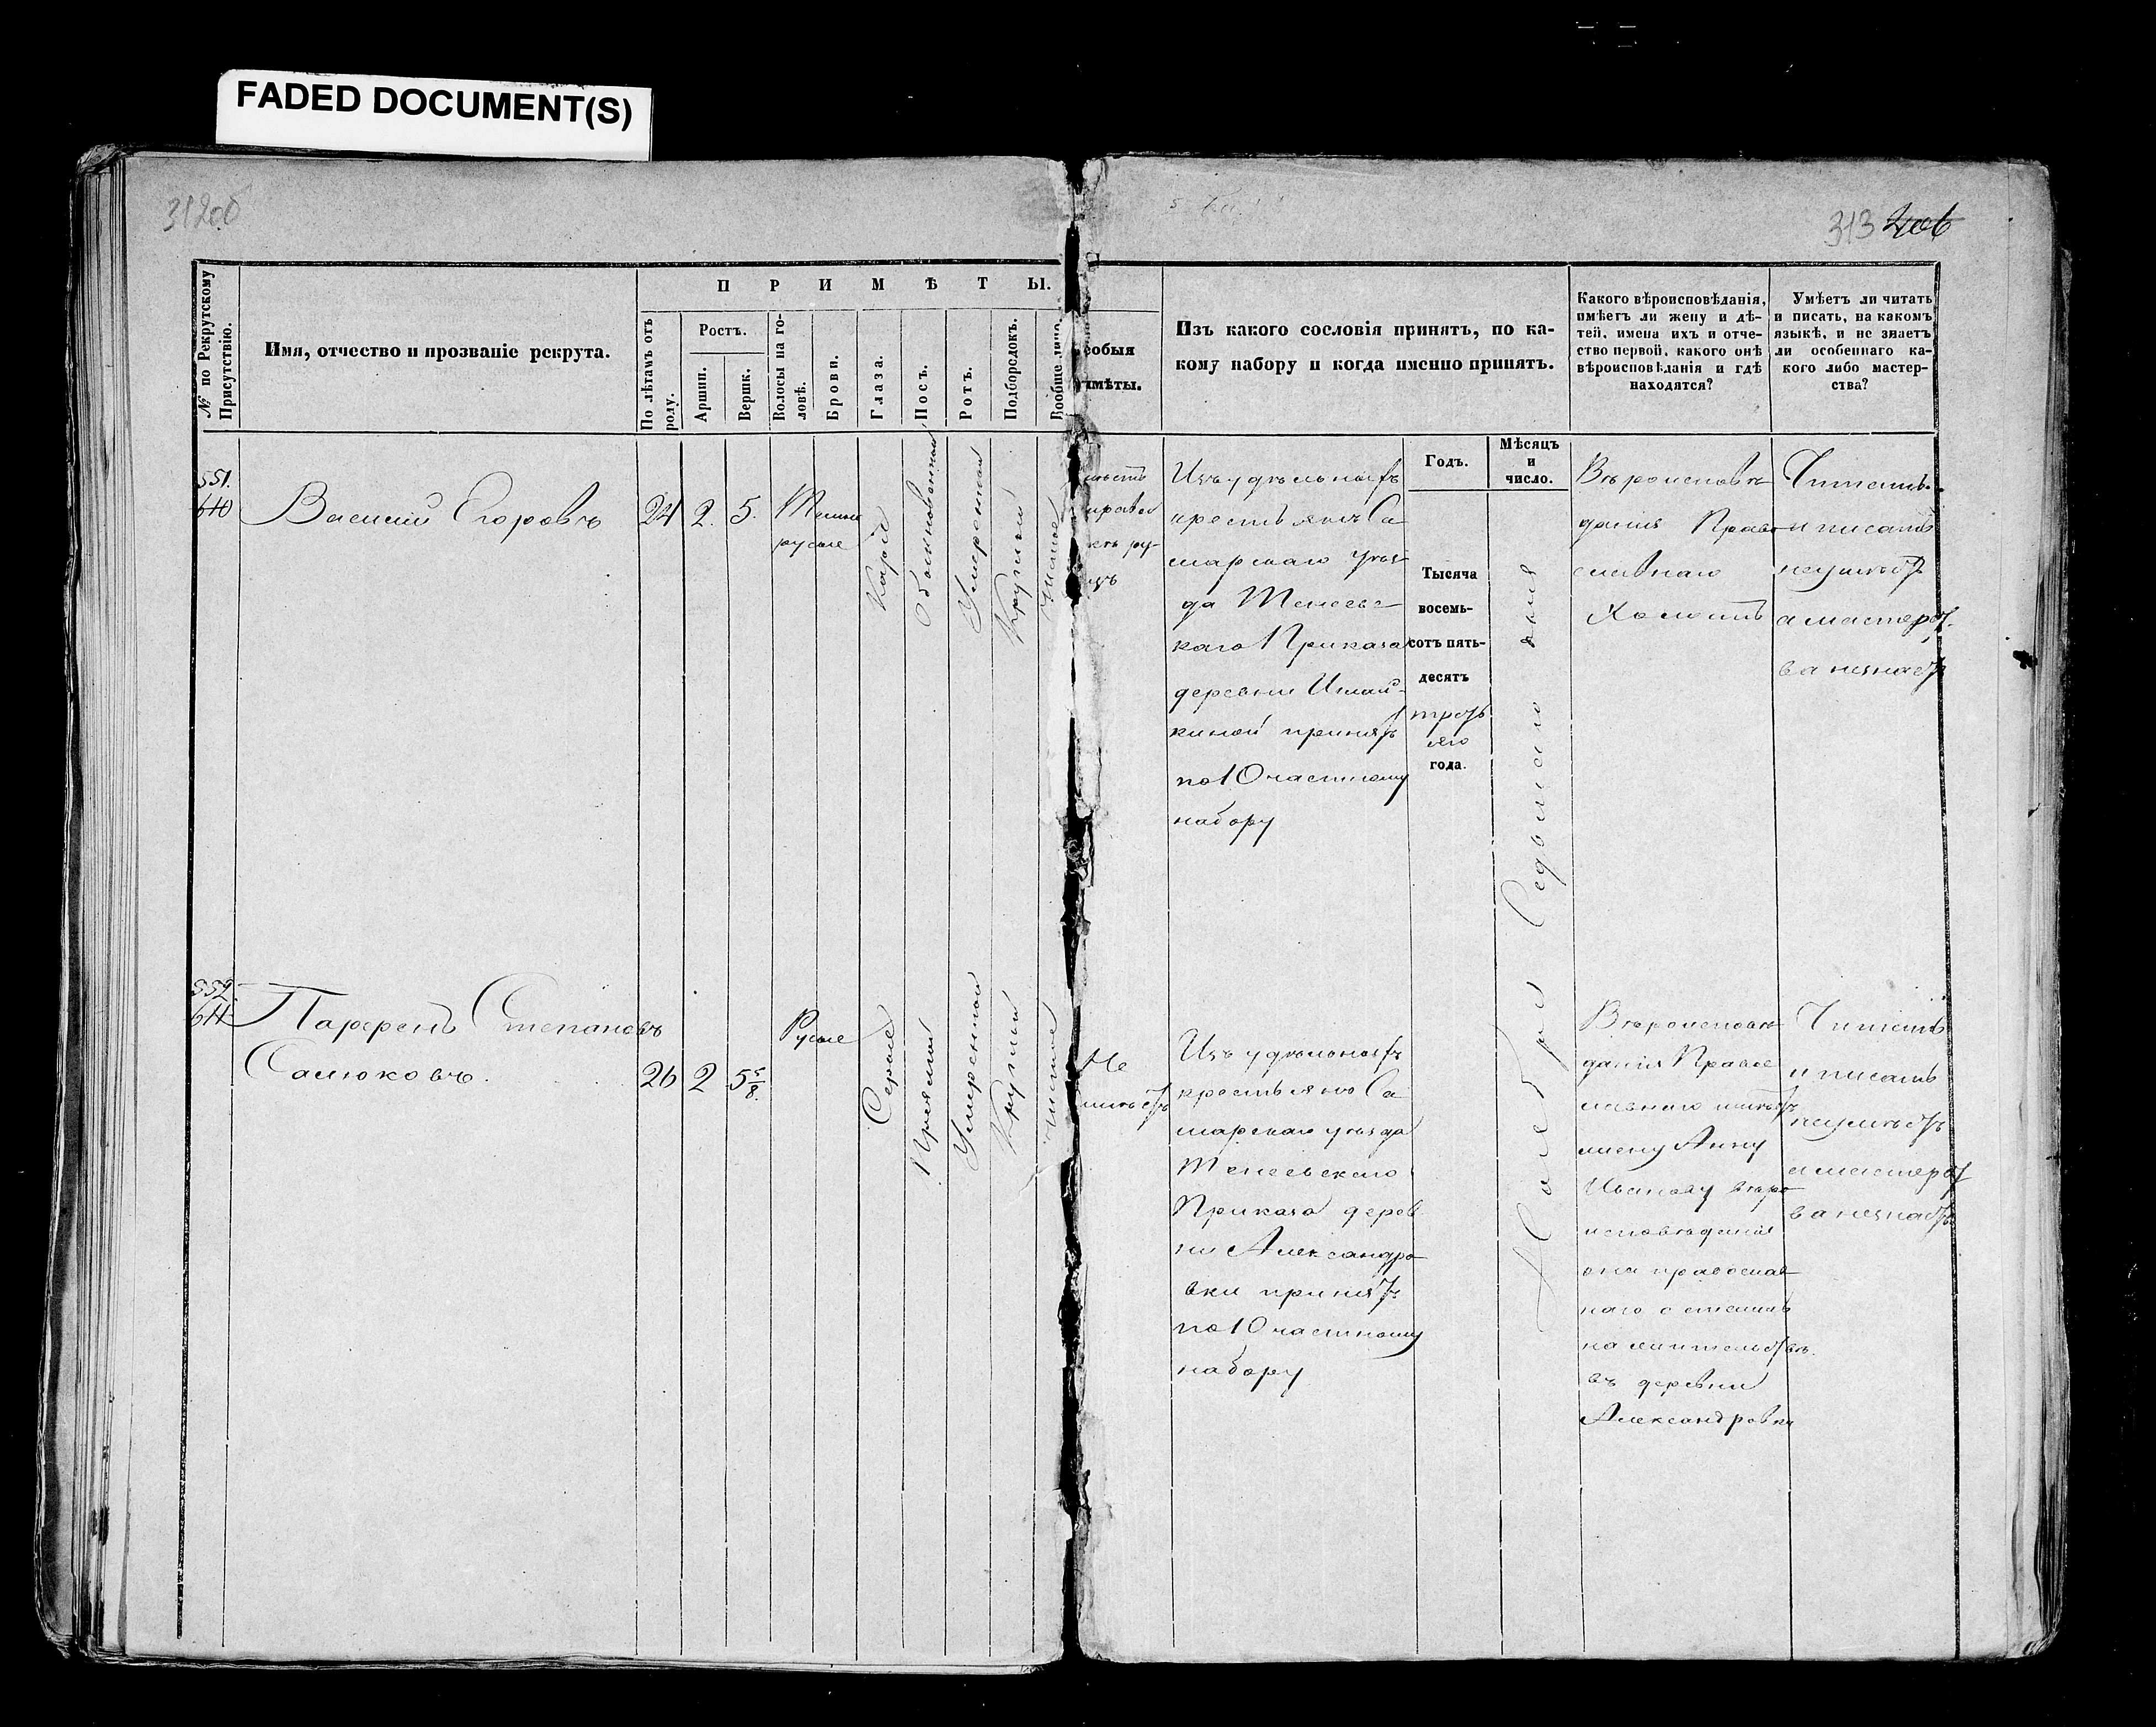 FADED DOCUMENT(S)
312об
313 406
№ по Рекрутскому Присутствію.
Имя, отчество и прозваніе рекрута.
ПРИМѢТЫ.
По лѣтамъ отъ роду.
Ростъ.
Аршин.
Вершк.
Волосы на головѣ.
Брови.
Глаза.
Носъ.
Ротъ.
Подбородокъ.
Вообще лицо.
собыя
имѣты.
Изъ какого сословія принятъ, по ка-
кому набору и когда именно принятъ.
Какого вѣроисповѣданія,
имѣетъ ли жену и дѣ-
тей, имена ихъ и отче-
ство первой, какого онѣ
вѣроисповѣданія и гдѣ
находятся?
Умѣетъ ли читать
и писать, на какомъ
языкѣ, и не знаетъ
ли особеннаго ка-
кого либо мастер-
ства?
Годъ.
Мѣсяцъ
и
число.
551.
610
Василий Егоровъ
24
2.
5.
Темно
русые
Карие
Обыкновенный
Умеренный
Круглый
Чистое
правой
ру-
Изъ удѣльныхъ
крестьянъ Са
марскаго уѣз
да Теневс
каго Приказа
деревни
киной принятъ
по 10 частному
набору
Тысяча
восемь-
сотъ пять-
десятъ
треть
яго
года.
Ноября Седьмаго дня
Вѣроисповѣ
данія Право
славнаго
Холостъ
Читать
и писать
неумѣетъ
а мастерст
ва незнаетъ
552
611
Парфенъ Степановъ
Самоковъ.
26
2
5 5/8.
Русые
Серые
Прямый
Умеренной
Круглый
Чистое
Не
имѣетъ
Изъ удѣльныхъ
крестьянъ Са
марскаго уѣзда
Теневскаго
Приказа дерев
ни Александро
вки принятъ
по 10 частному
набору
Вѣроисповѣ
данія Правос
лавнаго имѣетъ
жену Анну
Иванову вѣро
исповѣданія
она православ
наго
на жительствѣ
въ деревни
Александровки
Читать
и писать
неумѣетъ
а мастерст
ва незнаетъ